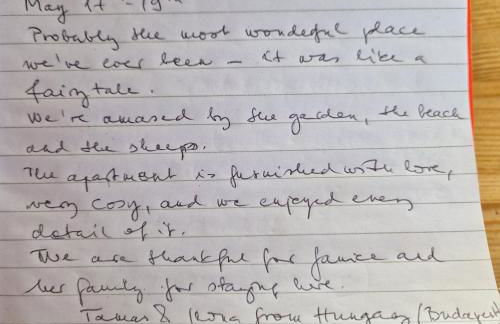 May 17 - 19th
Probably the most wondeful place
we've ever been - it was like a
fairytale.
We're amased by the garden, the beach
and the sheeps.
The apartment is furnished with love,
very cosy, and we enjoyed every
detail of it.
We are thankful for Janice and
her family for staying here.
Tamas & from Hungary (Budapest